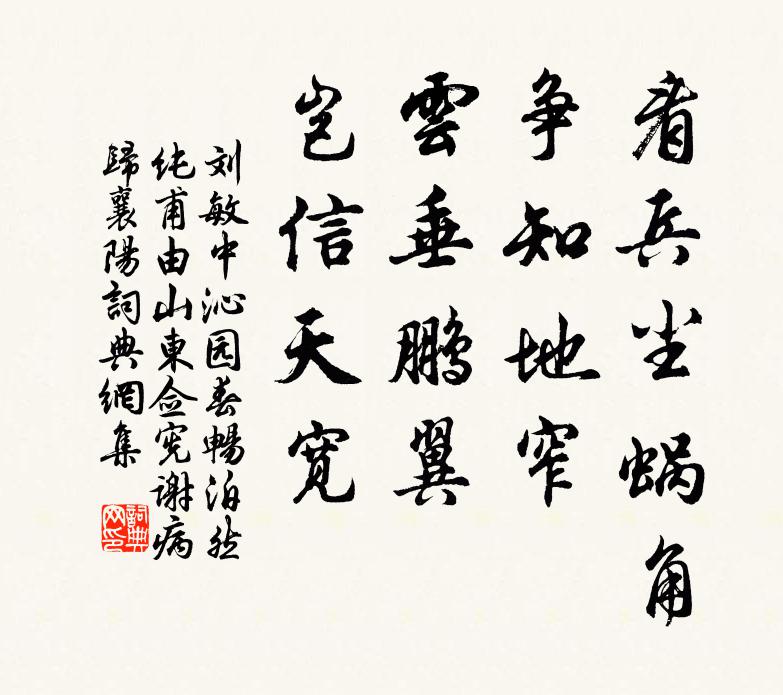 看兵尘蜗角
争知地窄
雲垂鹏翼
岂信天宽
刘敏中沁园春暢泊然
纯甫由山東佥宪谢病
歸襄陽詞典網集
詞典网印